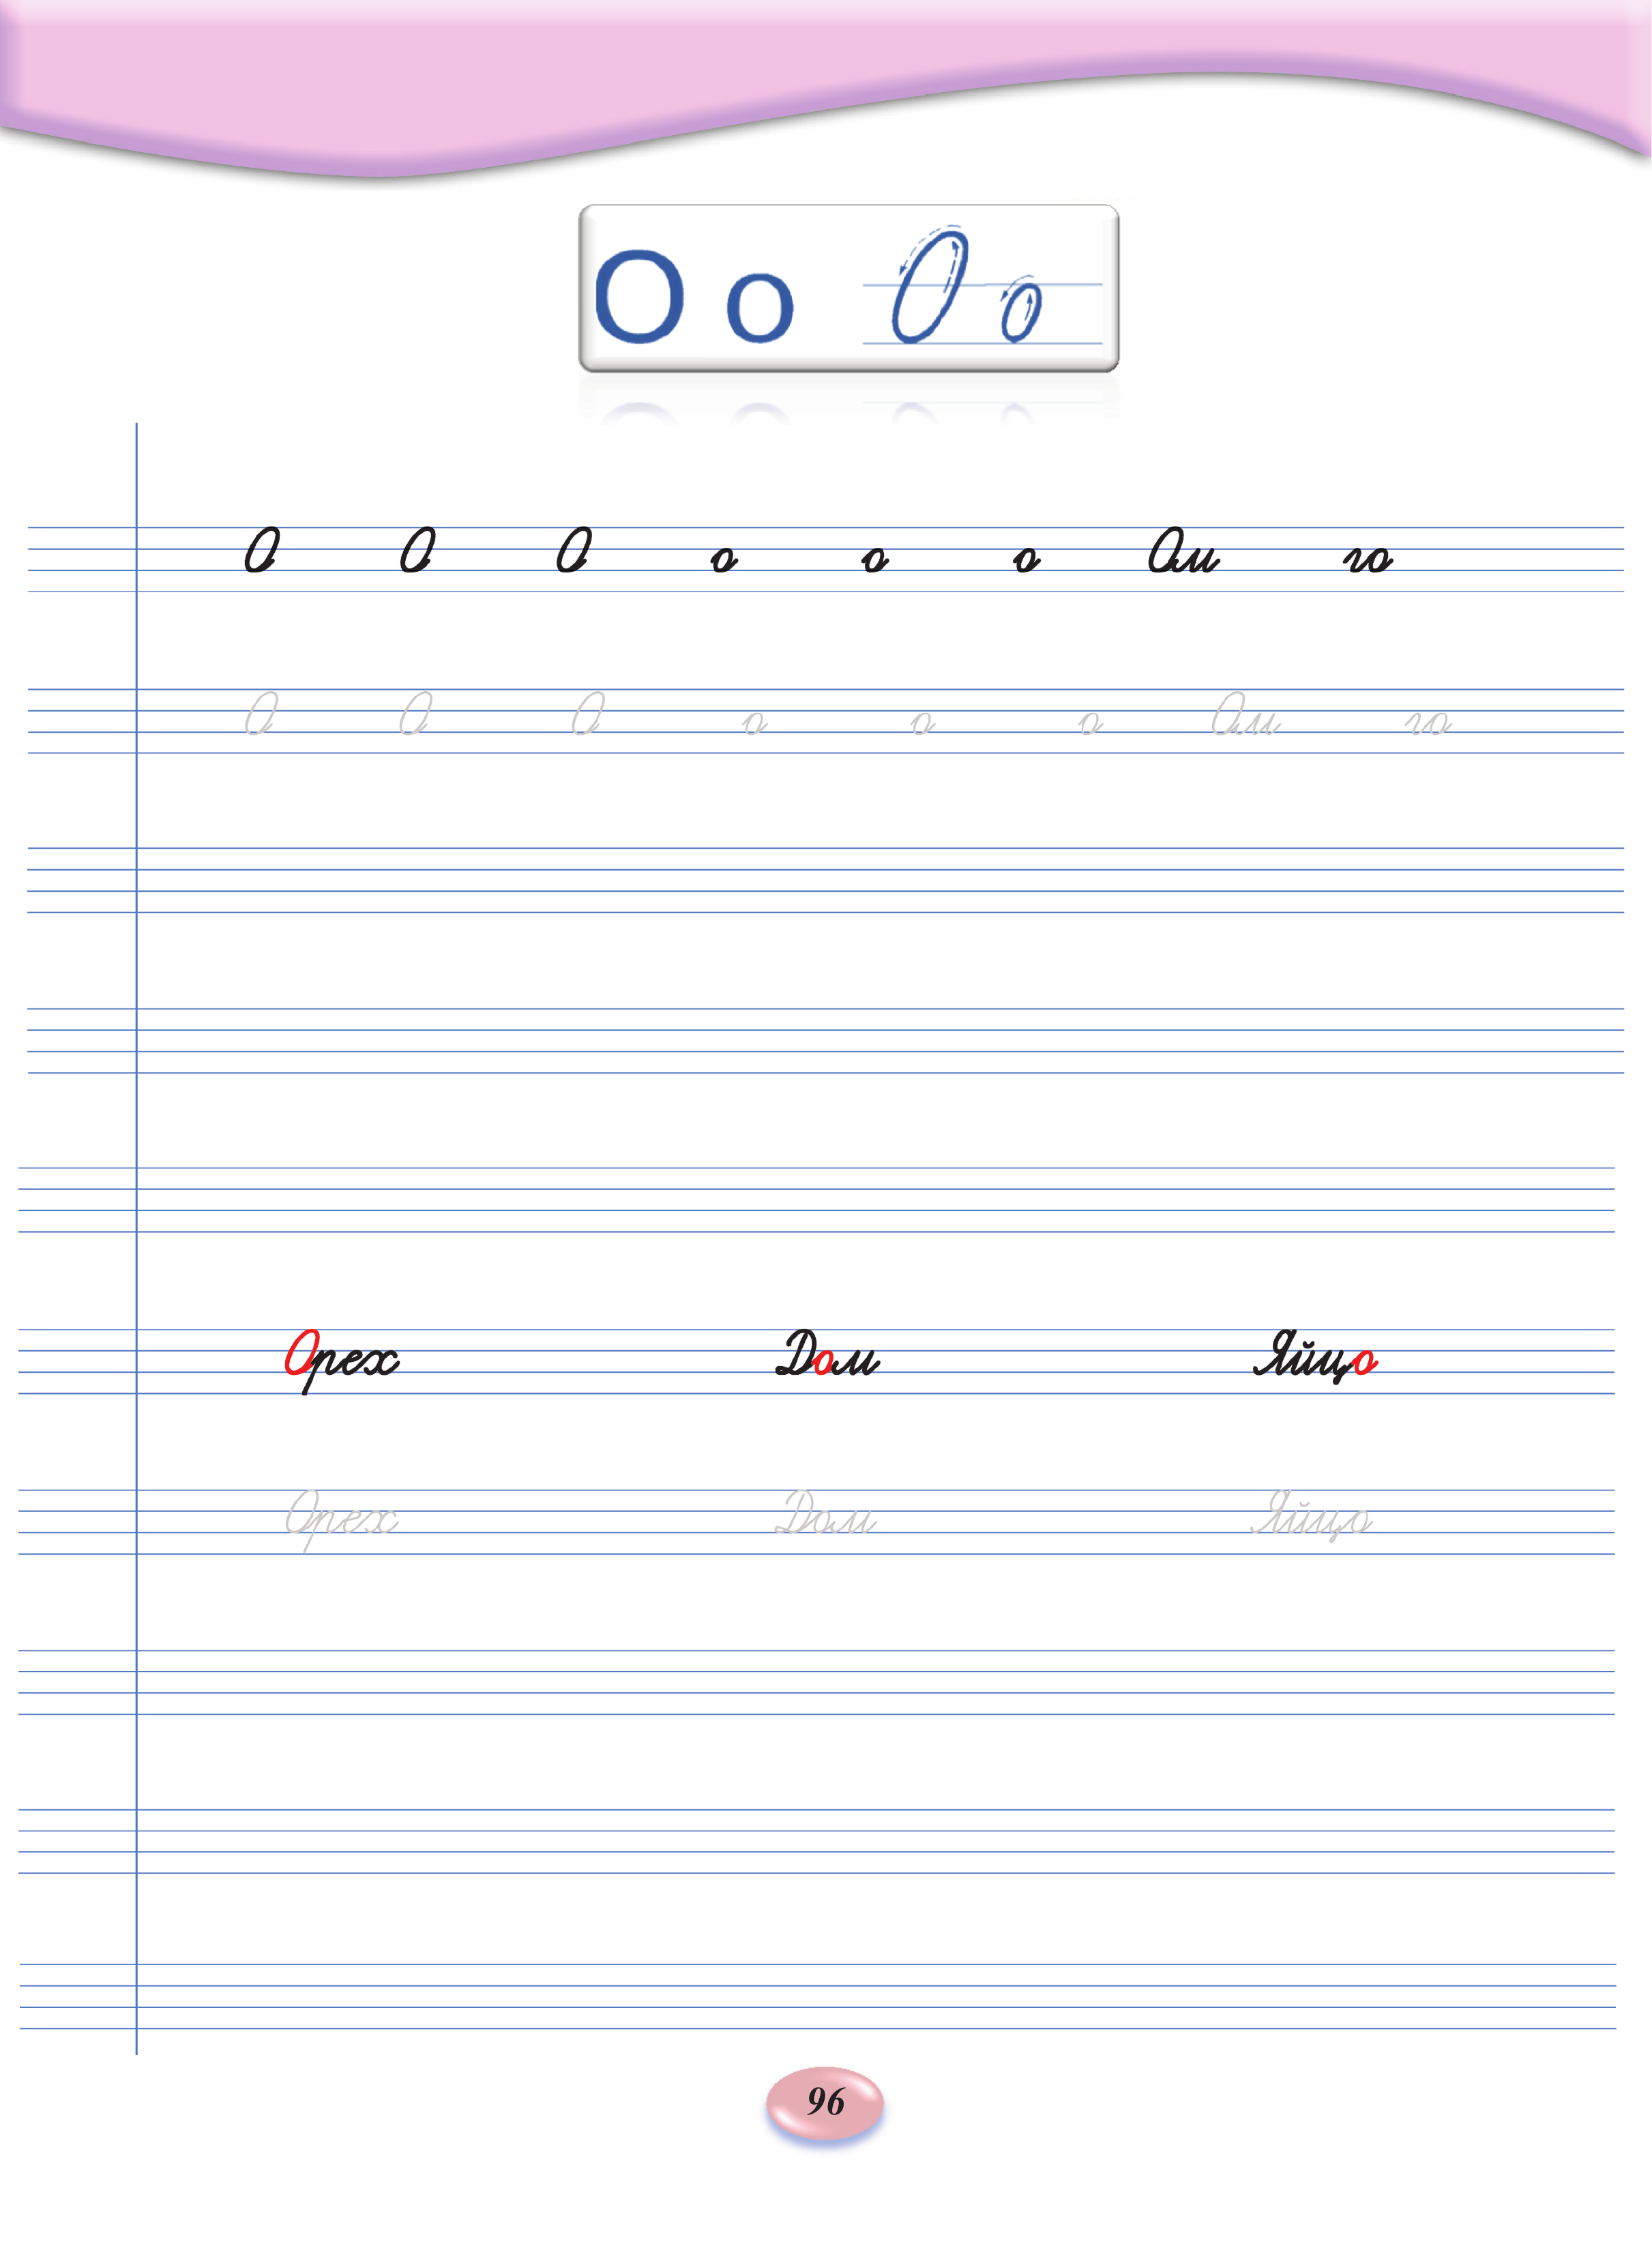 О о О о
О О О о о о Ом го
О О О о о о Ом го
Орех Дом Яйцо
Орех Дом Яйцо
96